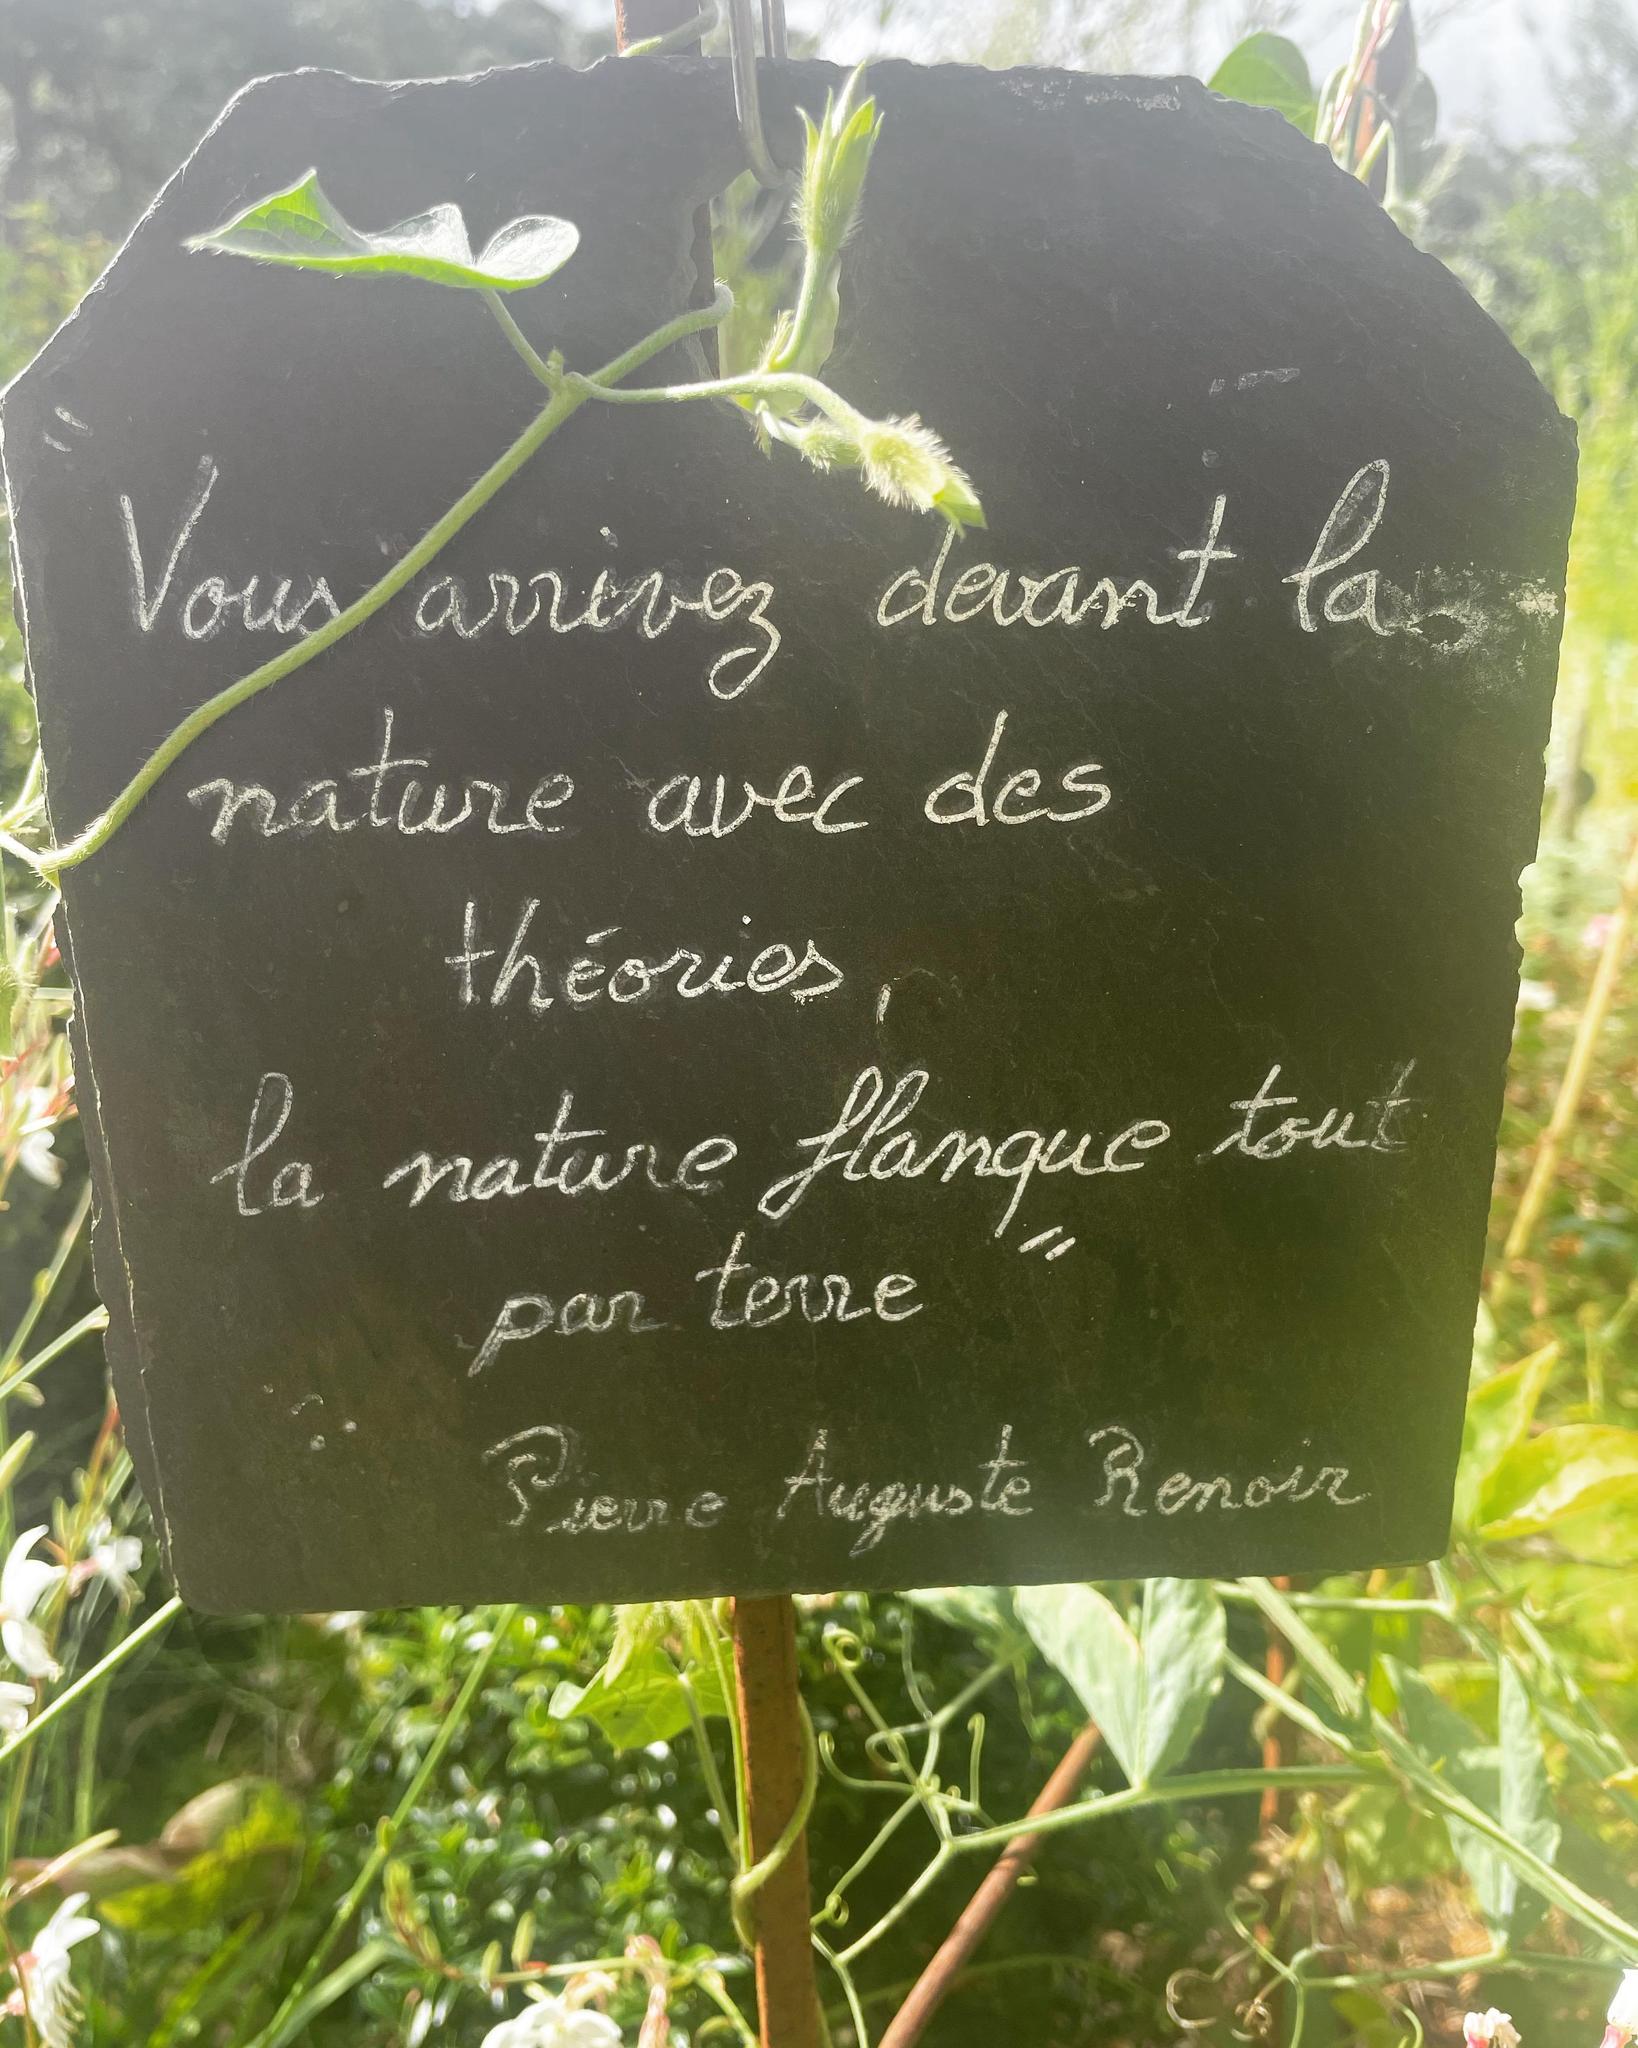 " Vous arrivez devant la
nature avec des
théories,
la nature flanque tout
par terre "
Pierre Auguste Renoir